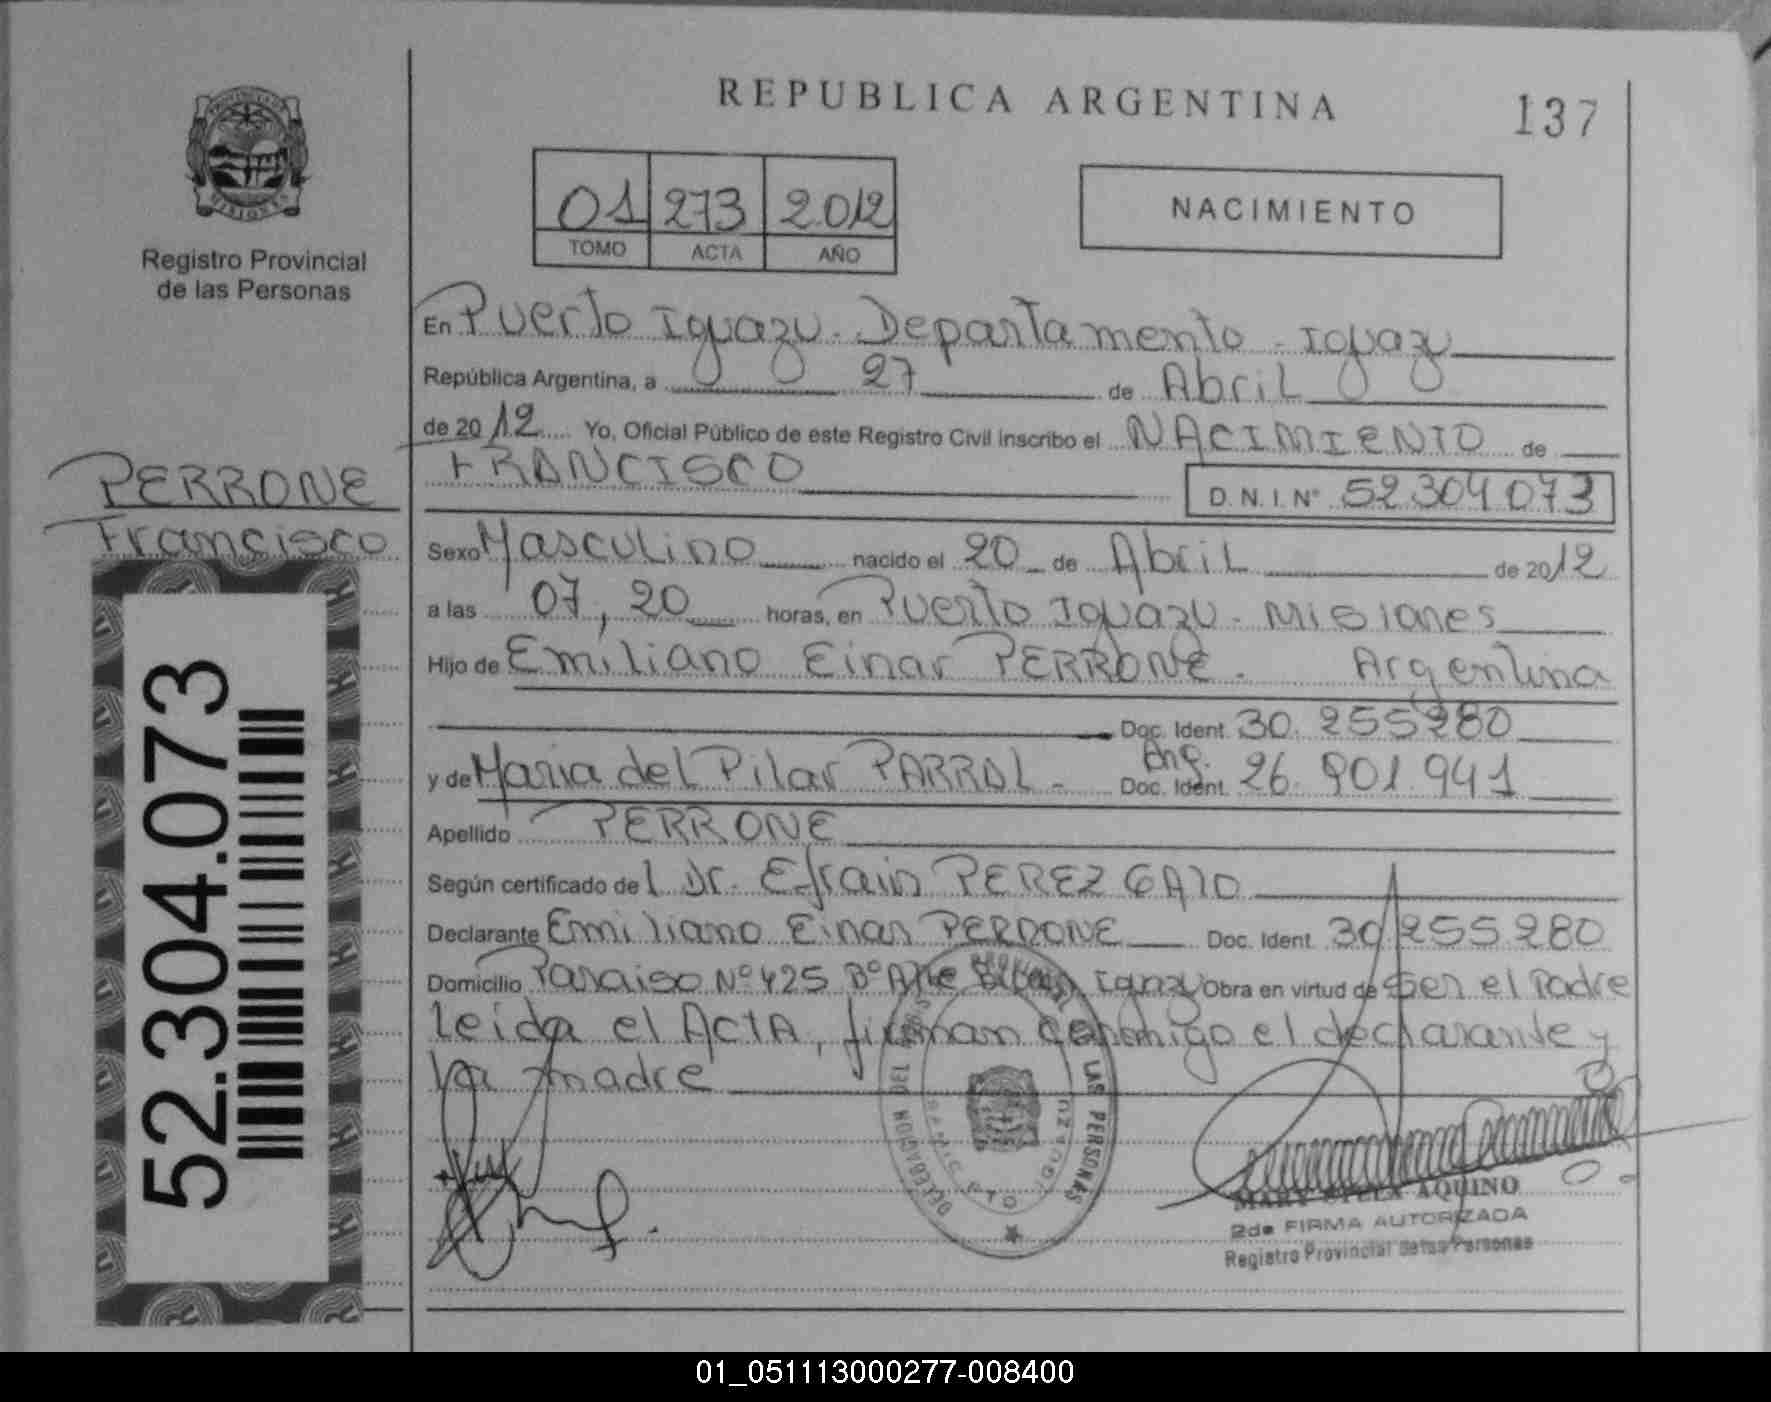 REPUBLICA ARGENTINA
137
PROVINCIA DE MISIONES
Registro Provincial
de las Personas
01 273 2012
TOMO ACTA AÑO
NACIMIENTO
En Puerto Iguazu - Departamento - Iguazu
República Argentina, a 27 de Abril
de 2012 Yo, Oficial Público de este Registro Civil inscribo el NACIMIENTO de
FRANCISCO
D.N.I. N° 52.304.073
PERRONE
Francisco
Sexo Masculino nacido el 20 de Abril de 2012
a las 07,20 horas, en Puerto Iguazu - Misiones
Hijo de Emiliano Einar PERRONE - Argentina
Doc. Ident. 30.255280
y de Maria del Pilar PARRAL - Arg. Doc. Ident. 26.901.941
Apellido PERRONE
Según certificado del Dr. Efrain PEREZ
Declarante Emiliano Einar PERRONE Doc. Ident. 30255280
Domicilio Paraiso N° 425 B° Iguazu Obra en virtud de Ser el Padre
Leida el Acta, firman conmigo el declarante y
la madre
52.304.073
DELEGACION DEL
LAS PERSONAS
MARY STELLA AQUINO
2da FIRMA AUTORIZADA
Registro Provincial de las Personas
01_051113000277-008400